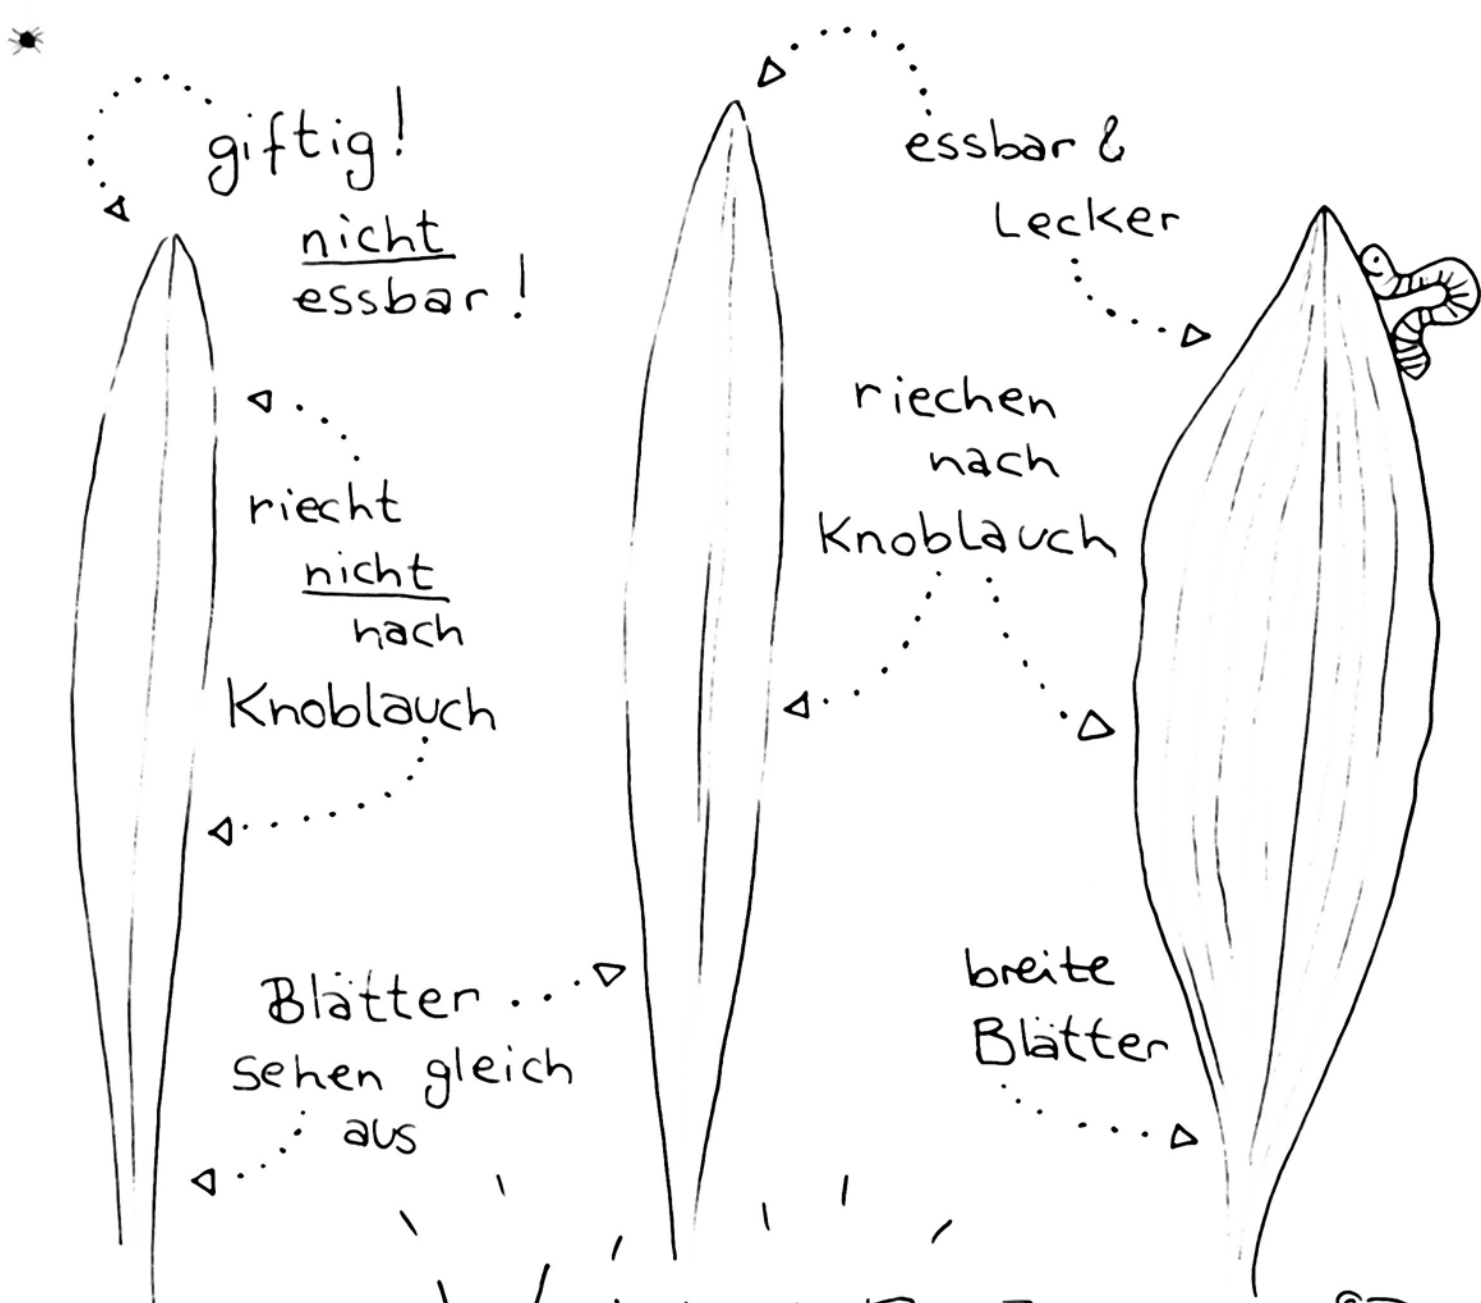 giftig!
nicht
essbar!
riecht
nicht
nach
Knoblauch
Blätter
sehen gleich
aus
essbar &
Lecker
riechen
nach
Knoblauch
breite
Blätter